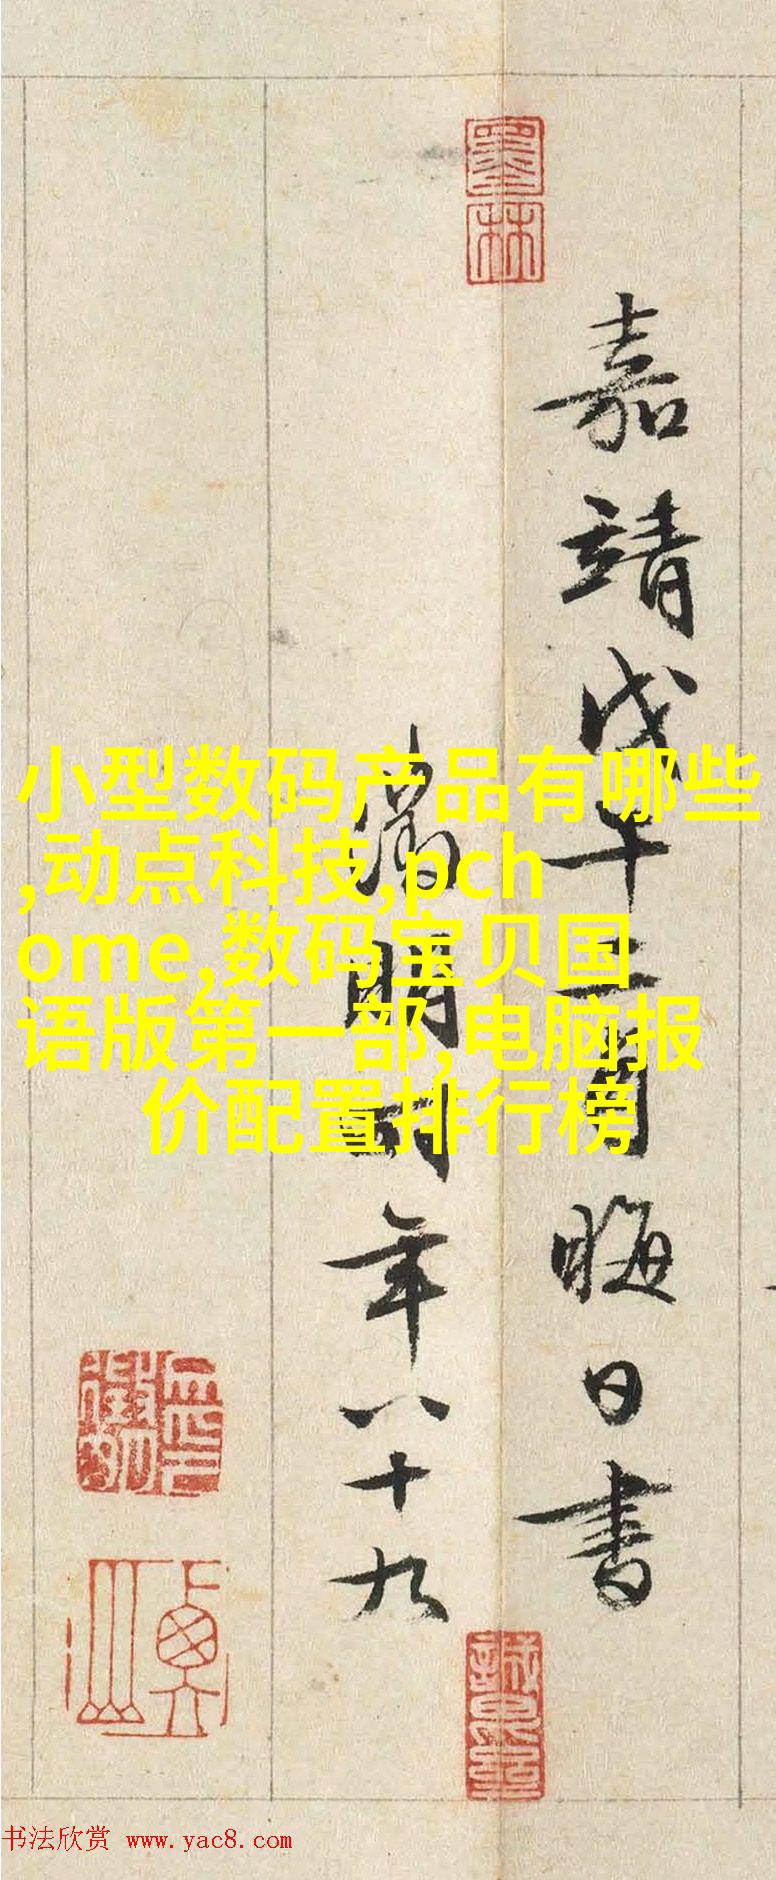 墨林
嘉靖戊午二月晦日書
徵明時年八十九
小型数码产品有哪些
,动点科技,pch
ome,数码宝贝国
语版第一部,电脑报
价配置排行榜
书法欣赏 www.yac8.com